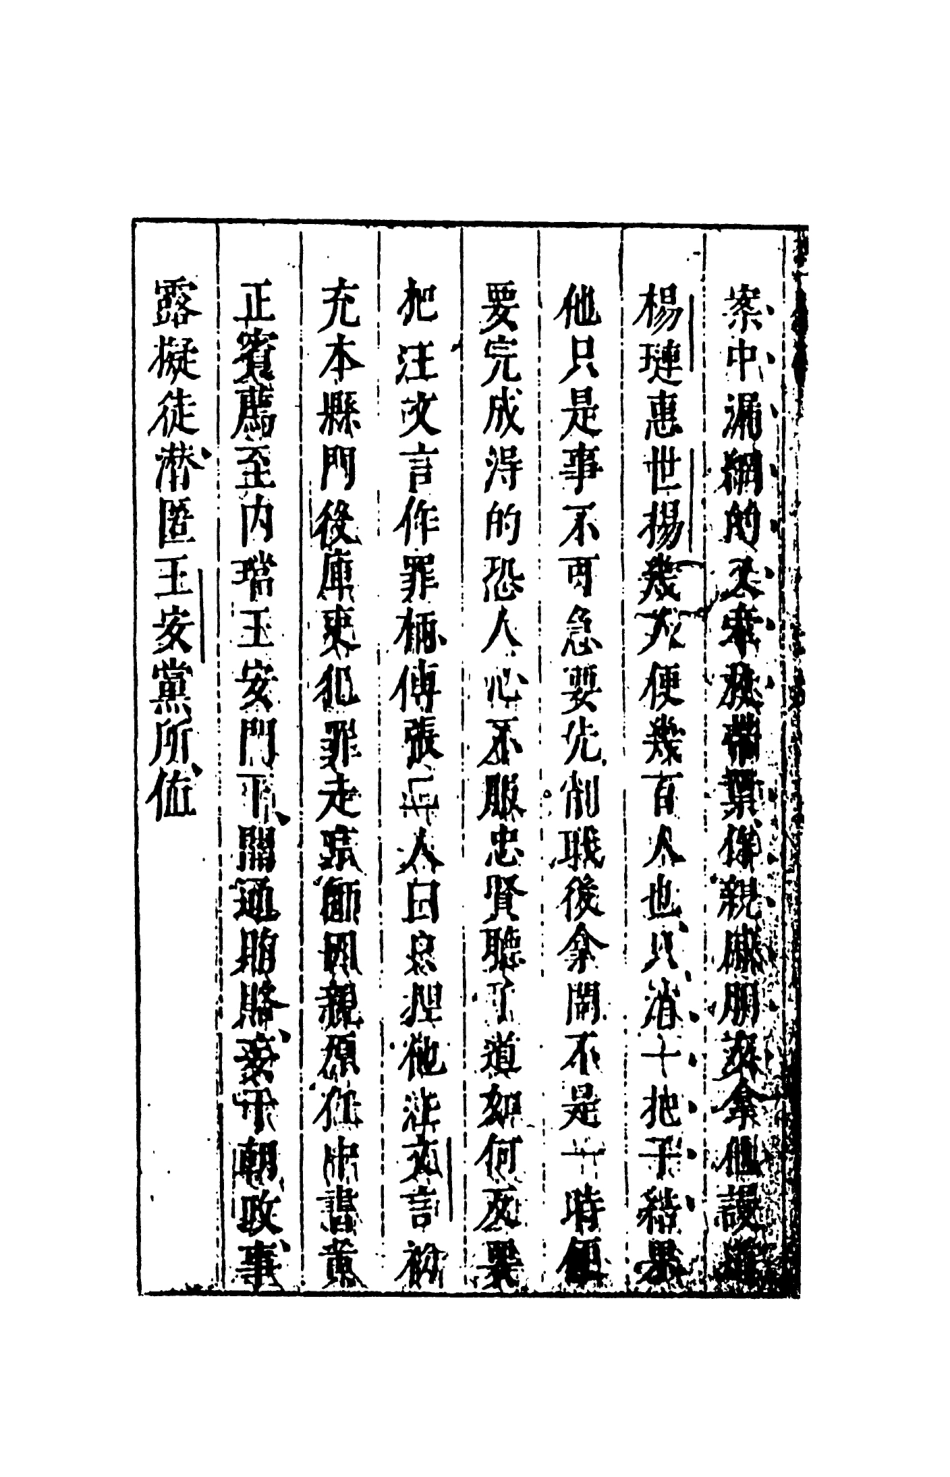 案中漏網的又牽枝帶葉保親戚朋友拿他謾道
楊璉惠世揚幾个便幾百人也只消十把千結果
他只是事不可急要先削職後拿問不是一時便
要完成得的恐人心不服忠賢聽了道如何反異
把汪文言作罪柄傅張二人曰只捏他汪文言初
充本縣門後庫吏犯罪走京師因親原任中書黄
正賓薦至内璫王安門下關通賄賂妄干朝政事
露擬徒潜匿王安黨所値